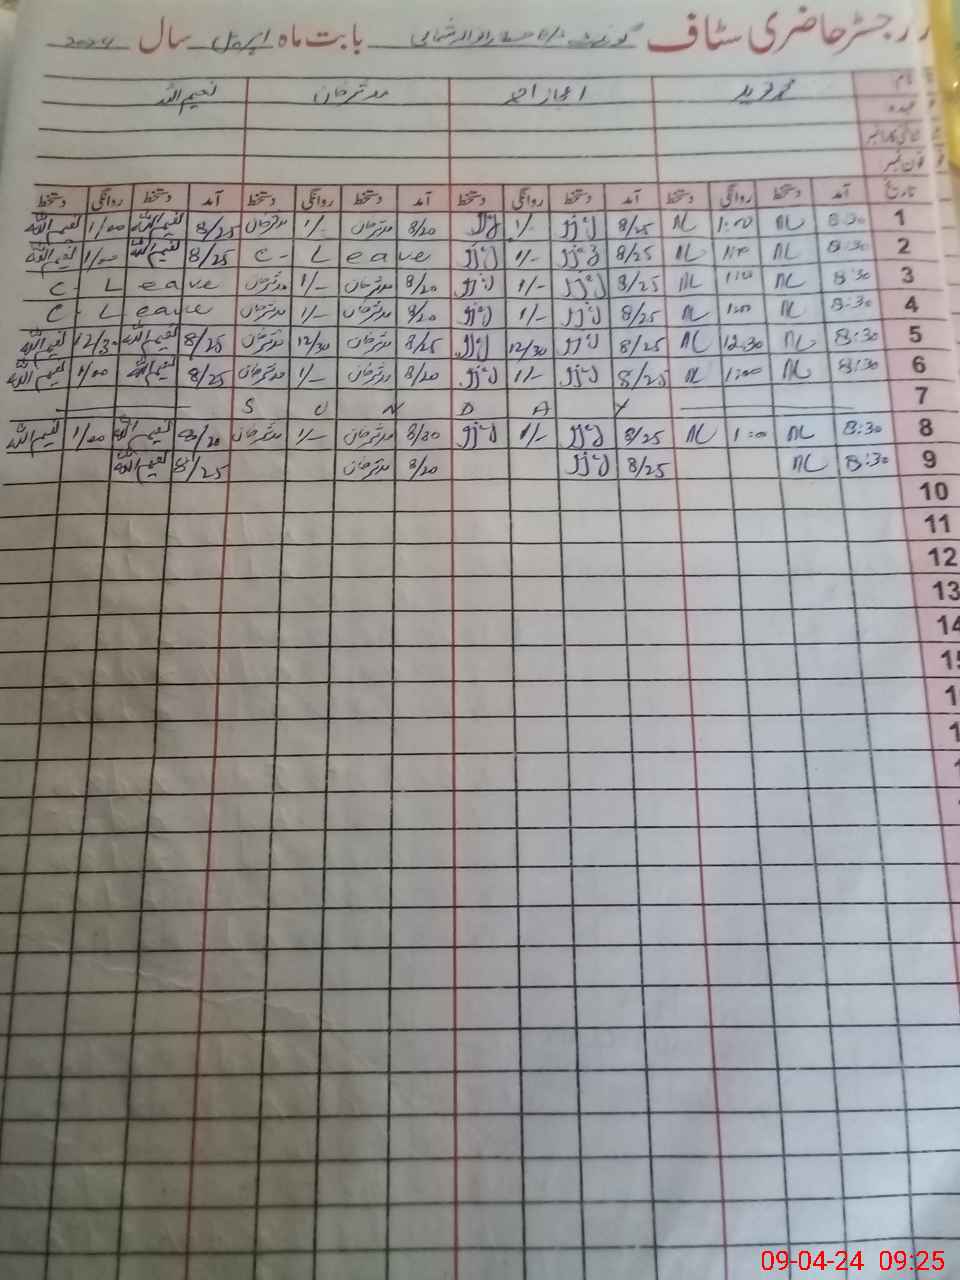 رجسٹر حاضری سٹاف گورنمنٹ بابت ماہ اپریل سال 2024
نام محمد نوید اعجاز احمد مدثر خان نعیم اللہ
عہدہ
شناختی کارڈ نمبر
فون نمبر
تاریخ آمد دستخط روانگی دستخط آمد دستخط روانگی دستخط آمد دستخط روانگی دستخط آمد دستخط روانگی دستخط
1 8:30 NL 1:00 NL 8/25 1/- 8/20 مدثر خان 1/- مدثر خان 8/25 نعیم اللہ 1/00 نعیم اللہ
2 8:30 NL 1:00 NL 8/25 1/- C- Leave 8/25 نعیم اللہ 1/00 نعیم اللہ
3 8:30 NL 1:00 NL 8/25 1/- 8/20 مدثر خان 1/- مدثر خان C- Leave
4 8:30 NL 1:00 NL 8/25 1/- 8/20 مدثر خان 1/- مدثر خان C- Leave
5 8:30 NL 12:30 NL 8/25 12/30 8/25 مدثر خان 12/30 مدثر خان 8/25 نعیم اللہ 12/30 نعیم اللہ
6 8:30 NL 1:00 NL 8/25 1/- 8/20 مدثر خان 1/- مدثر خان 8/25 نعیم اللہ 1/00 نعیم اللہ
7 S U N D A Y
8 8:30 NL 1:00 NL 8/25 1/- 8/20 مدثر خان 1/- مدثر خان 8/20 نعیم اللہ 1/00 نعیم اللہ
9 8:30 NL 8/25 8/20 مدثر خان 8/25 نعیم اللہ
10
11
12
13
14
15
09-04-24 09:25